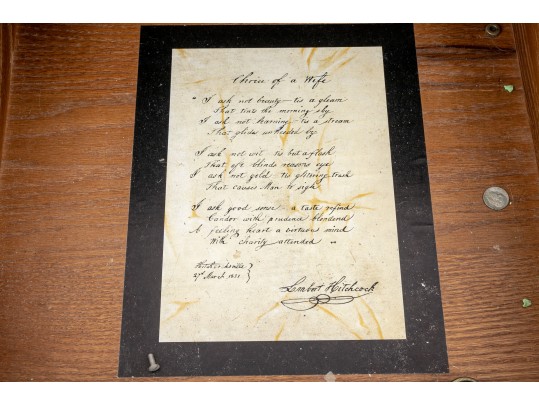 Choice of a Wife
I ask not beauty – tis a gleam
That tints the morning sky
I ask not learning – tis a stream
That glides unheeded by
I ask not wit tis but a flash
That oft blinds reasons eye
I ask not gold tis glittering trash
That causes Man to sigh
I ask good sense – a taste refind
Candor with prudence blended
A feeling heart a virtuous mind
With charity attended
March 1821
Lambert Hitchcock